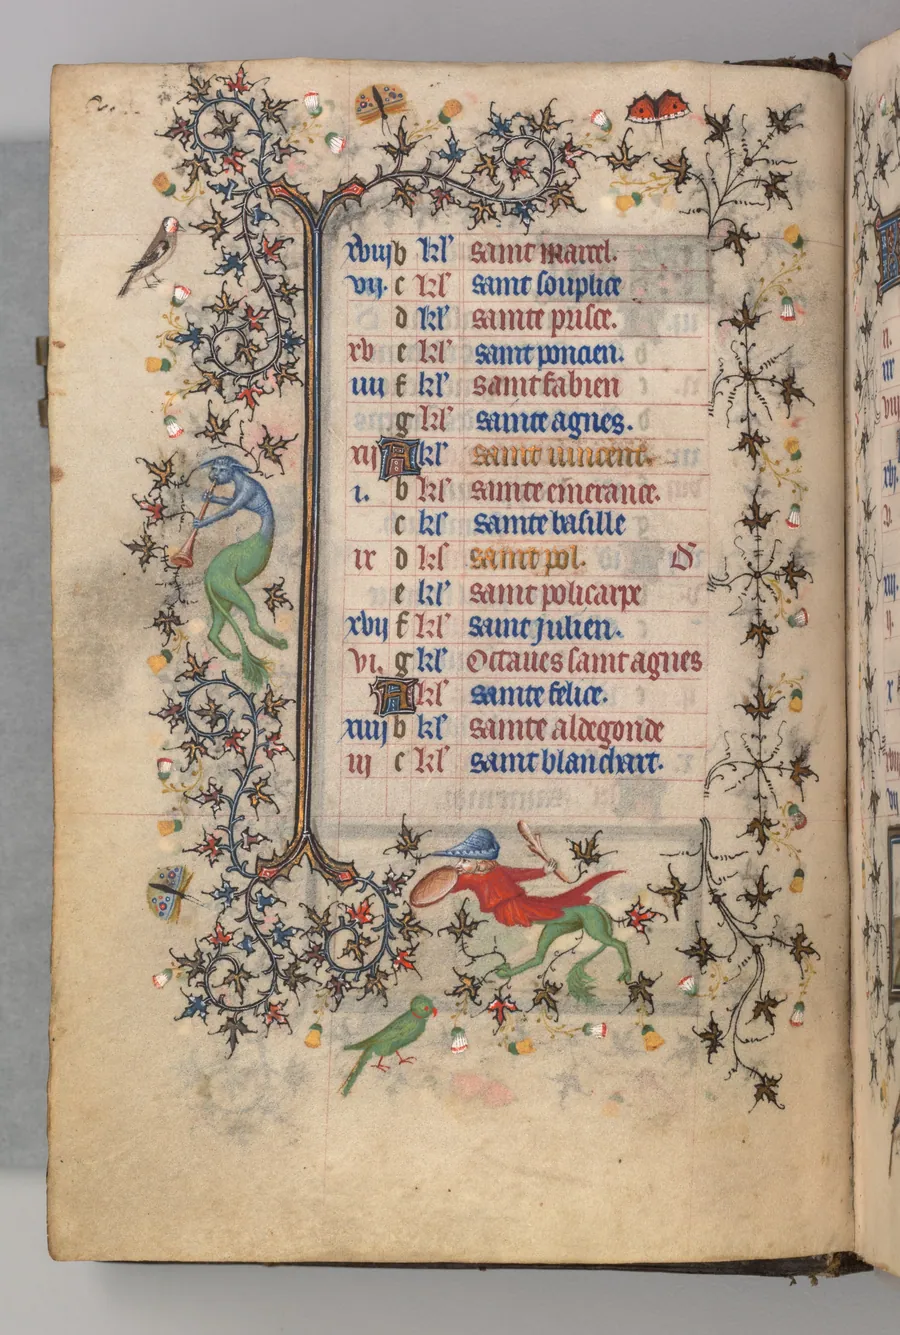 xviij b kl' saint marcel.
vij. c kl' saint souplice
d kl' sainte prisce.
xv e kl' saint poncien.
iiij f kl' saint fabien
g kl' sainte agnes.
xij A kl' saint uincent.
i. b kl' sainte emerance.
c kl' sainte basille
ix d kl' saint pol. D
e kl' saint policarpe
xvij f kl' saint julien.
vi. g kl' Octaues saint agnes
A kl' sainte felice.
xiiij b kl' sainte aldegonde
iij c kl' saint blanchart.